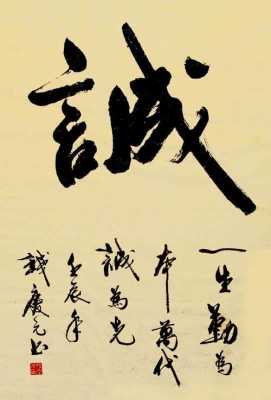 誠
一生勤為
本萬代
誠為先
壬辰年
钱慶元书